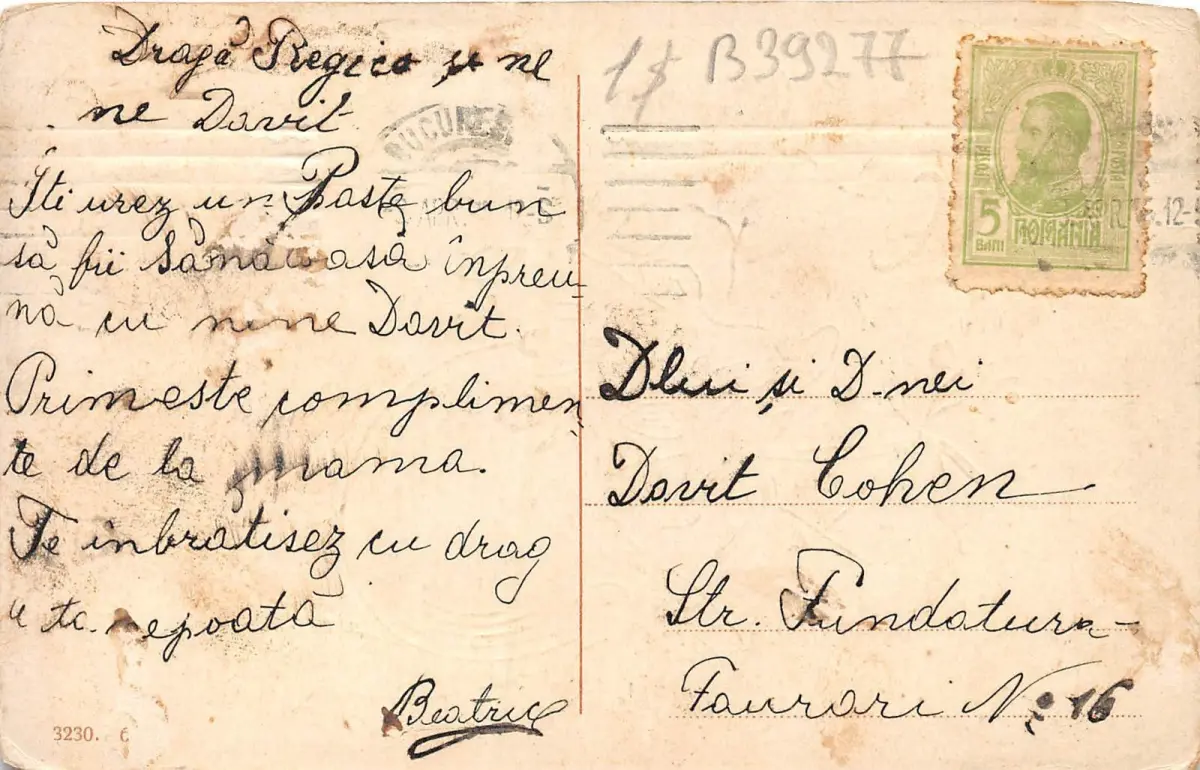 Dragă Regico și ne
ne Davit
Iti urez un Paste bun
să fii Sănătoasă înpreu-
nă cu nene Davit.
Primeste complimen
te de la mama.
Te inbratisez cu drag
a ta nepoată
Beatrice
3230. 6
1 $ B39277
BUCUREȘ
POSTA
5
BANI
ROMANIA
12-
Dlui și D-nei
Davit Cohen
Str. Fundatura-
Faurari No 16